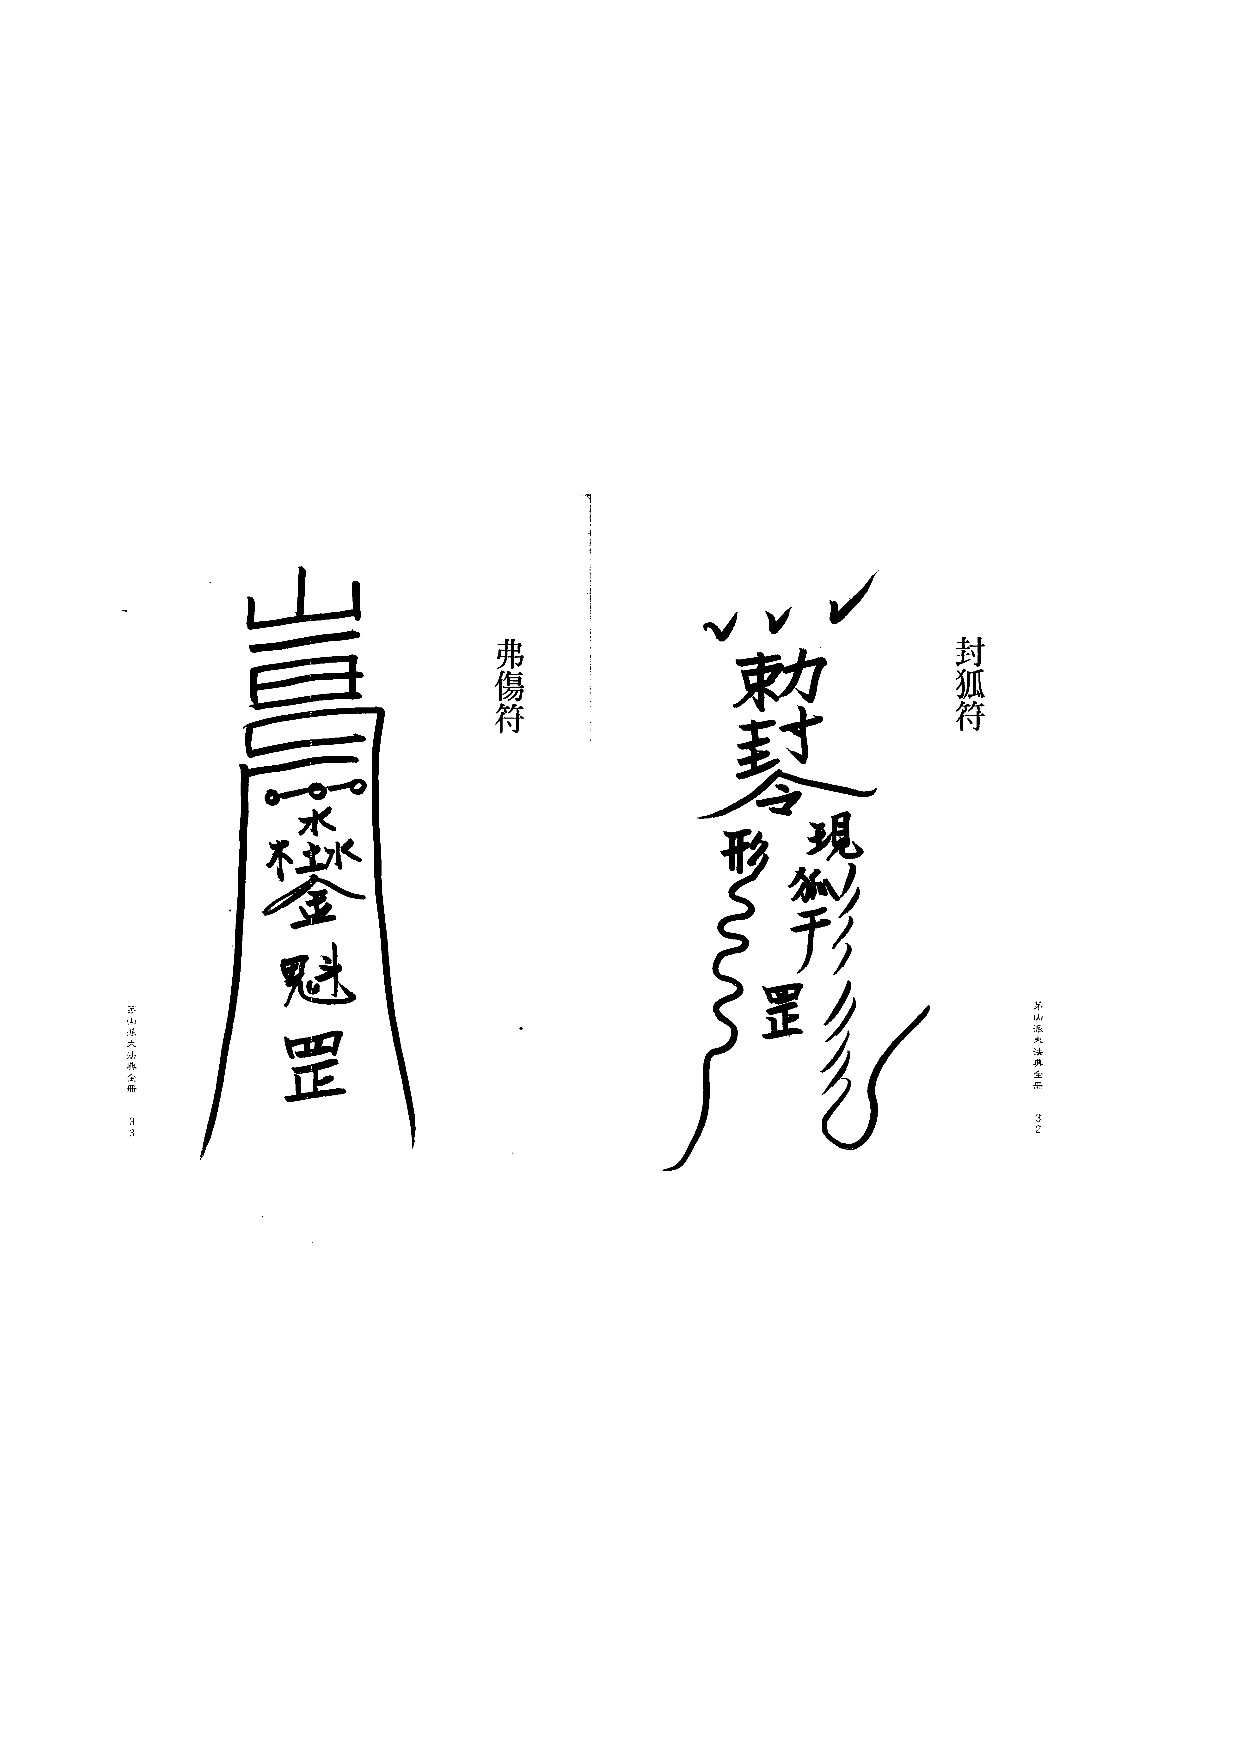 封狐符
勅
封
令
現
形
狐
于
罡
茅山派大法典全册 32
弗傷符
山
水
木土水
金
魁
罡
茅山派大法典全册 33